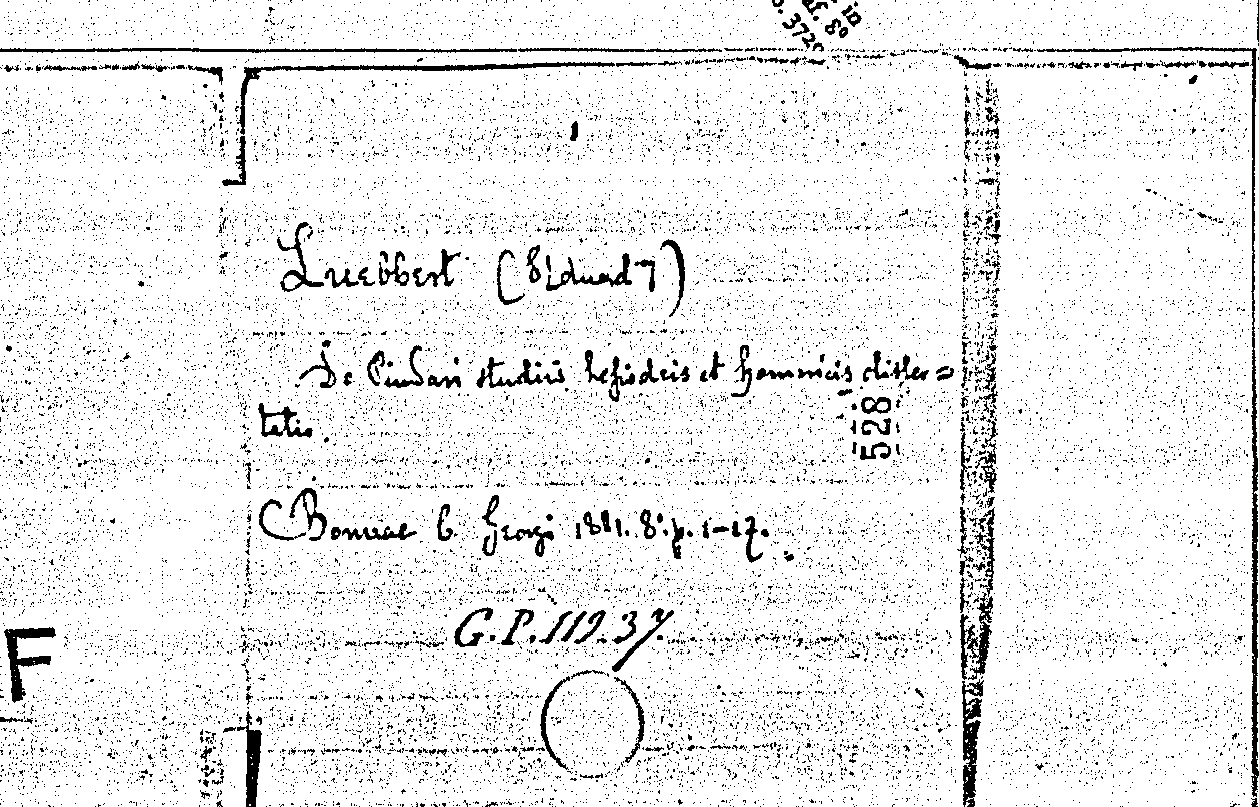 in
af. 8º
o. 3720
Luebbert (Eduard)
De Pindari studiis hesiodeis et homericis disser=
tatio.
528
Bonnae C. Georgi 1881. 8º. p. 1-27.
G.P. 119.37
F